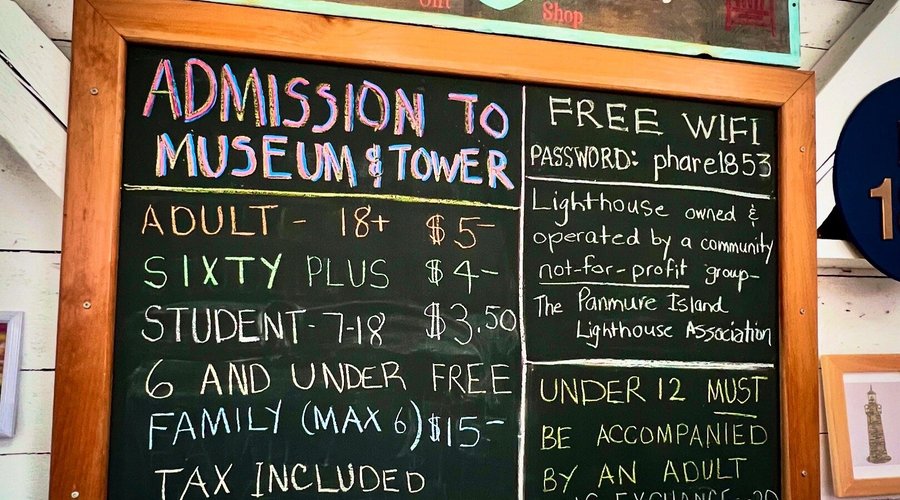 Gift
Shop
ADMISSION TO
MUSEUM & TOWER
ADULT - 18+ $5-
SIXTY PLUS $4-
STUDENT-7-18 $3.50
6 AND UNDER FREE
FAMILY (MAX 6) $15-
TAX INCLUDED
FREE WIFI
PASSWORD: phare1853
Lighthouse owned &
operated by a community
not-for-profit group-
The Panmure Island
Lighthouse Association
UNDER 12 MUST
BE ACCOMPANIED
BY AN ADULT
1